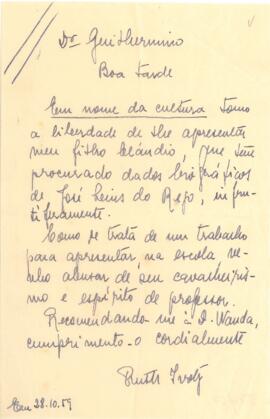 Dr Guilhermino
Boa tarde
Em nome da cultura tomo
a liberdade de lhe apresentar
meu filho Cláudio, que tem
procurado dados biográficos
de José Lins do Rego, infru-
tiferamente.
Como se trata de um trabalho
para apresentar na escola ve-
nho abusar de seu cavalheiris-
mo e espírito de professor.
Recomendando-me à D. Wanda,
cumprimento-o cordialmente
Ruth
Em 28.10.59